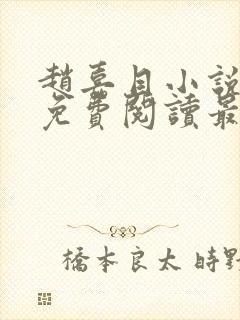 趙喜目小說
免費閱讀最
橋本良太 時野